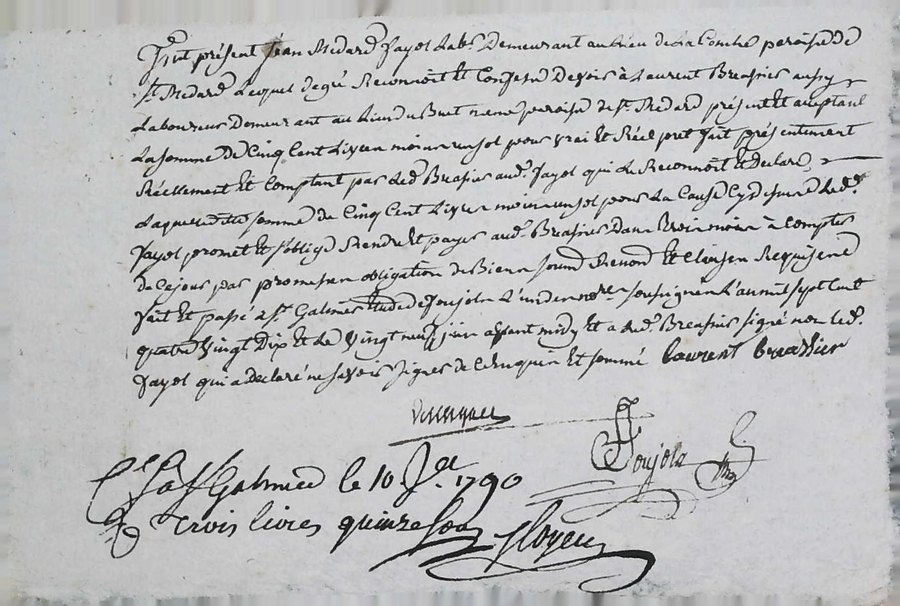 Fut présent Jean Medard Fayol Lab.r Demeurant au Lieu de La Combe paroisse De
St. Medard Lequel degré Reconnoit Et Confesse Devoir à Laurent Breasier aussy
Laboureur Demeurant au Lieu du Buet meme paroisse de St. Medard présent Et acceptant
La somme De Cinq Cent Livres moins un sol pour vrai Et Réel pret fait présentement
Réellement Et Comptant par Led. Breasier aud. Fayol qui Le Reconnoit Et Declare,
Laquelle ditte somme de Cinq Cent Livres moins un sol pour La Cause Cy dessus Led.
Fayol promet Et s'oblige Rendre Et payer aud. Breasier Dans trois mois à Compter
de Ce jour par promesse obligation de Biens soumo Renond Et Clauses Requises
fait Et passé à St. Galmier Etude de Foujols L'un des nores soussignés L'an mil sept Cent
quatre Vingt Dix Et Le Vingt neuf juin avant midy Et a Led. Breasier signé non Led.
Fayol qui a declaré ne savoir signer de Ce Enquis Et sommé Laurent breassier
Foujols
C.lé à St Galmier le 10 J.et 1790
R. trois livres quinze sous